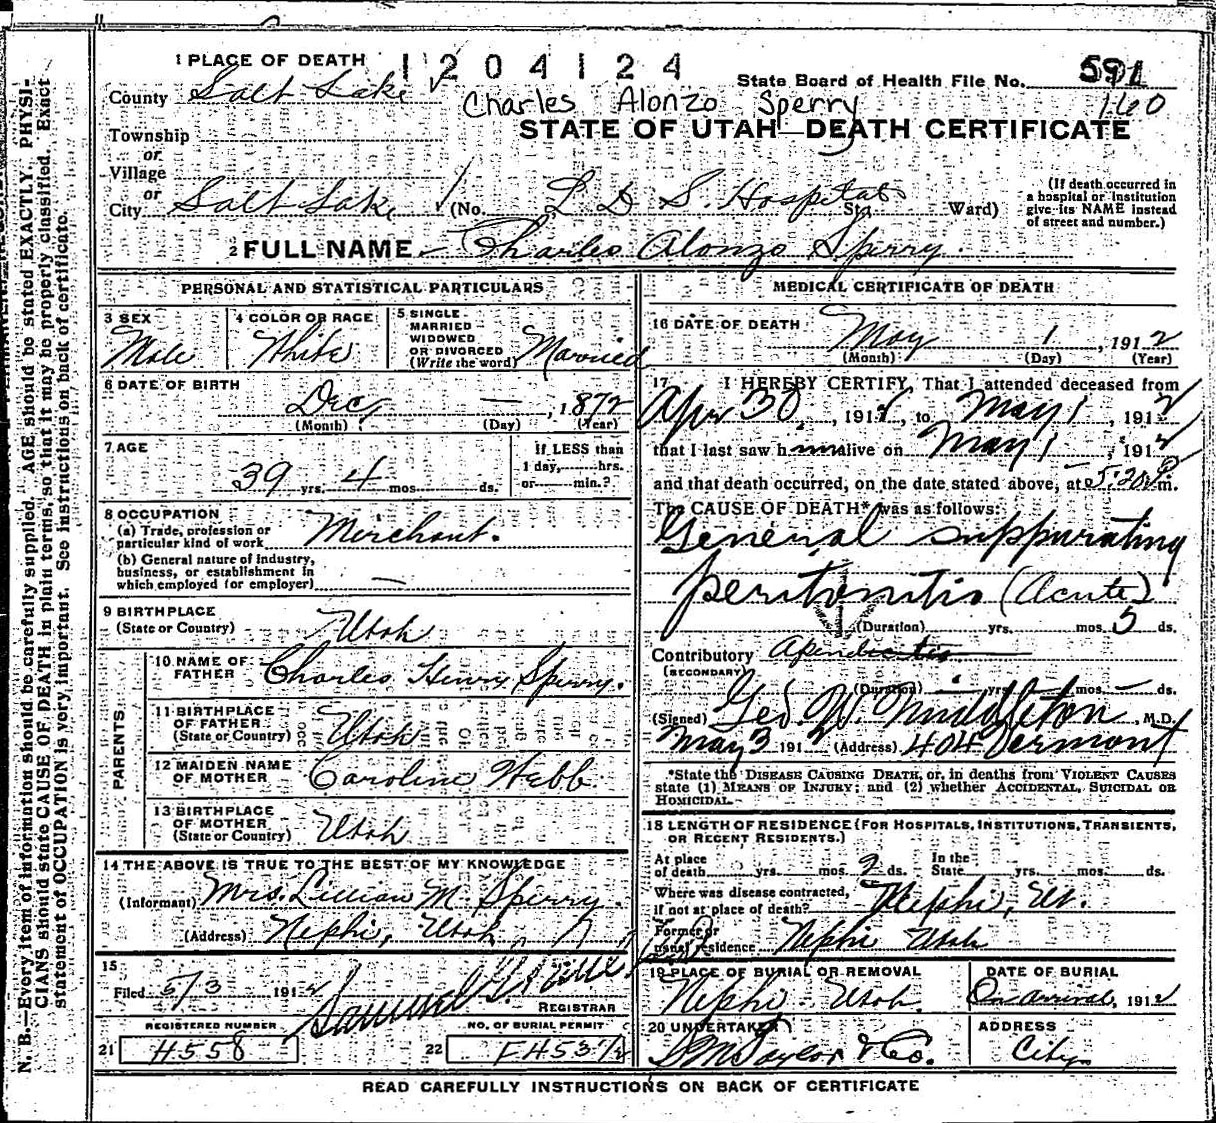 1 PLACE OF DEATH
1204124
State Board of Health File No. 591
County Salt Lake
Charles Alonzo Sperry
160
STATE OF UTAH—DEATH CERTIFICATE
Township
or
Village
or
City Salt Lake (No. L D S. Hospital St; Ward)
(If death occurred in a hospital or institution give its NAME instead of street and number.)
2 FULL NAME Charles Alonzo Sperry.
PERSONAL AND STATISTICAL PARTICULARS
3 SEX
Male
4 COLOR OR RACE
White
5 SINGLE
MARRIED
WIDOWED
OR DIVORCED
(Write the word) Married
6 DATE OF BIRTH
Dec, — , 1872
(Month) (Day) (Year)
7 AGE
39 yrs. 4 mos. ds.
If LESS than
1 day, hrs.
or min.?
8 OCCUPATION
(a) Trade, profession or
particular kind of work Merchant.
(b) General nature of industry,
business, or establishment in
which employed (or employer) —
9 BIRTHPLACE
(State or Country) Utah
PARENTS
10 NAME OF
FATHER Charles Henry Sperry.
11 BIRTHPLACE
OF FATHER
(State or Country) Utah
12 MAIDEN NAME
OF MOTHER Caroline Webb.
13 BIRTHPLACE
OF MOTHER
(State or Country) Utah
14 THE ABOVE IS TRUE TO THE BEST OF MY KNOWLEDGE
(Informant) Mrs. Lillian M. Sperry.
(Address) Nephi, Utah,
15
Filed 5/3 1912 Samuel G.
REGISTRAR
REGISTERED NUMBER
21 H558
NO. OF BURIAL PERMIT
22
MEDICAL CERTIFICATE OF DEATH
16 DATE OF DEATH
May 1 , 1912
(Month) (Day) (Year)
17 I HEREBY CERTIFY, That I attended deceased from
Apr 30 , 1912, to May 1 , 1912
that I last saw him alive on May 1 , 1912
and that death occurred, on the date stated above, at 5:20 P m.
The CAUSE OF DEATH* was as follows:
General suppurating
peritonitis (Acute)
(Duration) yrs. mos. 5 ds.
Contributory Apendicitis
(SECONDARY)
(Duration) — yrs. — mos. — ds.
(Signed) Geo W. Middleton , M.D.
May 3 1912 (Address) 404 Vermont
*State the DISEASE CAUSING DEATH, or, in deaths from VIOLENT CAUSES
state (1) MEANS OF INJURY; and (2) whether ACCIDENTAL, SUICIDAL OR
HOMICIDAL.
18 LENGTH OF RESIDENCE (FOR HOSPITALS, INSTITUTIONS, TRANSIENTS,
OR RECENT RESIDENTS.)
At place
of death yrs. mos. 2 ds.
In the
State yrs. mos. ds.
Where was disease contracted,
if not at place of death? Nephi, Ut.
Former or
usual residence Nephi Utah
19 PLACE OF BURIAL OR REMOVAL
Nephi Utah.
DATE OF BURIAL
On arrival, 1912
20 UNDERTAKER
S. M. Taylor & Co.
ADDRESS
City
READ CAREFULLY INSTRUCTIONS ON BACK OF CERTIFICATE
N. B.—Every item of information should be carefully supplied. AGE should be stated EXACTLY. PHYSI-
CIANS should state CAUSE OF DEATH in plain terms, so that it may be properly classified. Exact
statement of OCCUPATION is very important. See instructions on back of certificate.